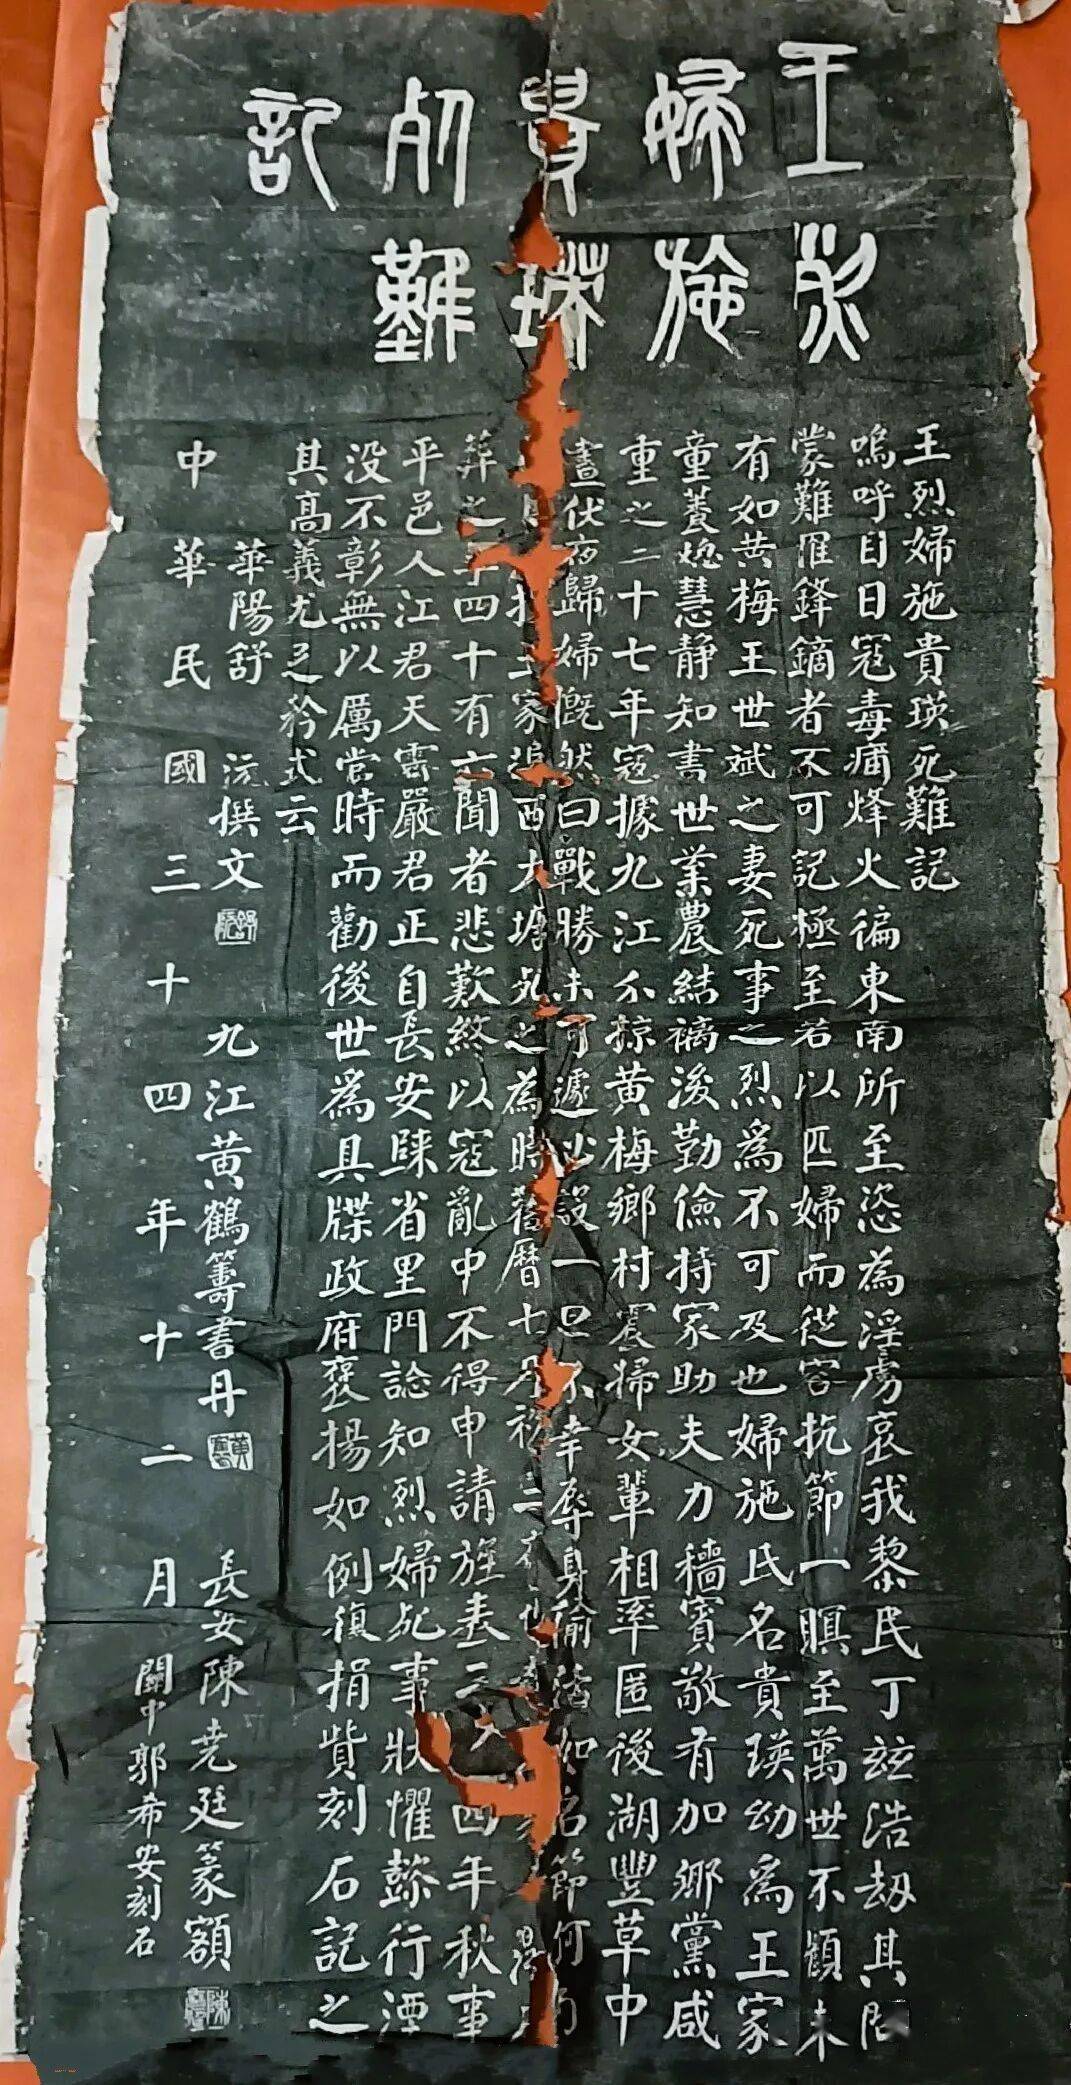 王烈
婦施
貴瑛
死難
記
王烈婦施貴瑛死難記
嗚呼自日寇毒痡烽火徧東南所至恣為淫虜哀我黎民丁茲浩劫其間
蒙難罹鋒鏑者不可記極至若以匹婦而從容抗節一瞑至萬世不顧未
有如黄梅王世斌之妻死事之烈爲不可及也婦施氏名貴瑛幼爲王家
童養媳慧靜知書世業農結褵後勤儉持家助夫力穡賓敬有加鄉黨咸
重之二十七年寇據九江分掠黄梅鄉村農婦女輩相率匿後湖豐草中
晝伏夜歸婦慨然曰戰勝未可遽必設一旦不幸辱身偷活如名節何
家 西大塘死之為時舊曆七月初三
葬之年四十有六聞者悲歎終以寇亂中不得申請旌表三 四年秋事
平邑人江君天霽嚴君正自長安歸省里門諗知烈婦死事狀懼懿行湮
没不彰無以厲當時而勸後世為具牒政府褒揚如例復捐貲刻石記之
其高義尤足矜式云
華陽舒 撰文 九江黄鶴籌書丹 長安陳堯廷篆額
中華民國三十四年十二月 關中郭希安刻石